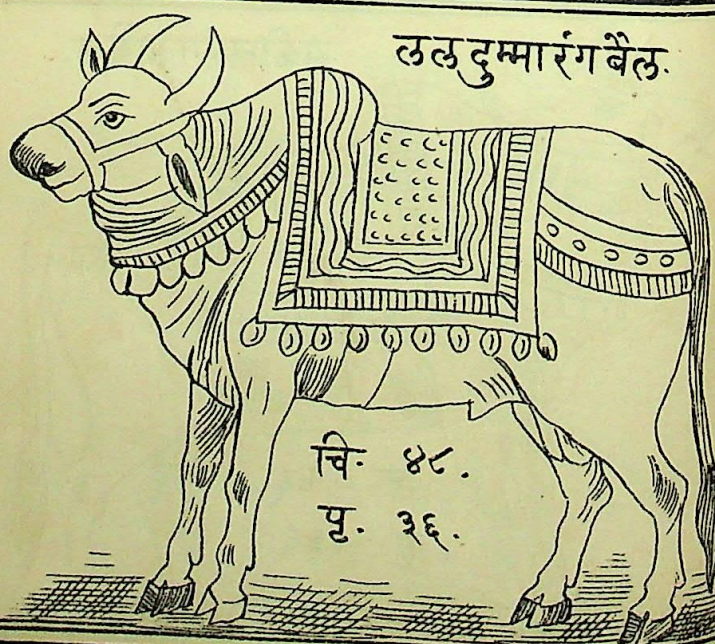 ललदुम्मा रंग बैल.
चि. ४८.
पृ. ३६.